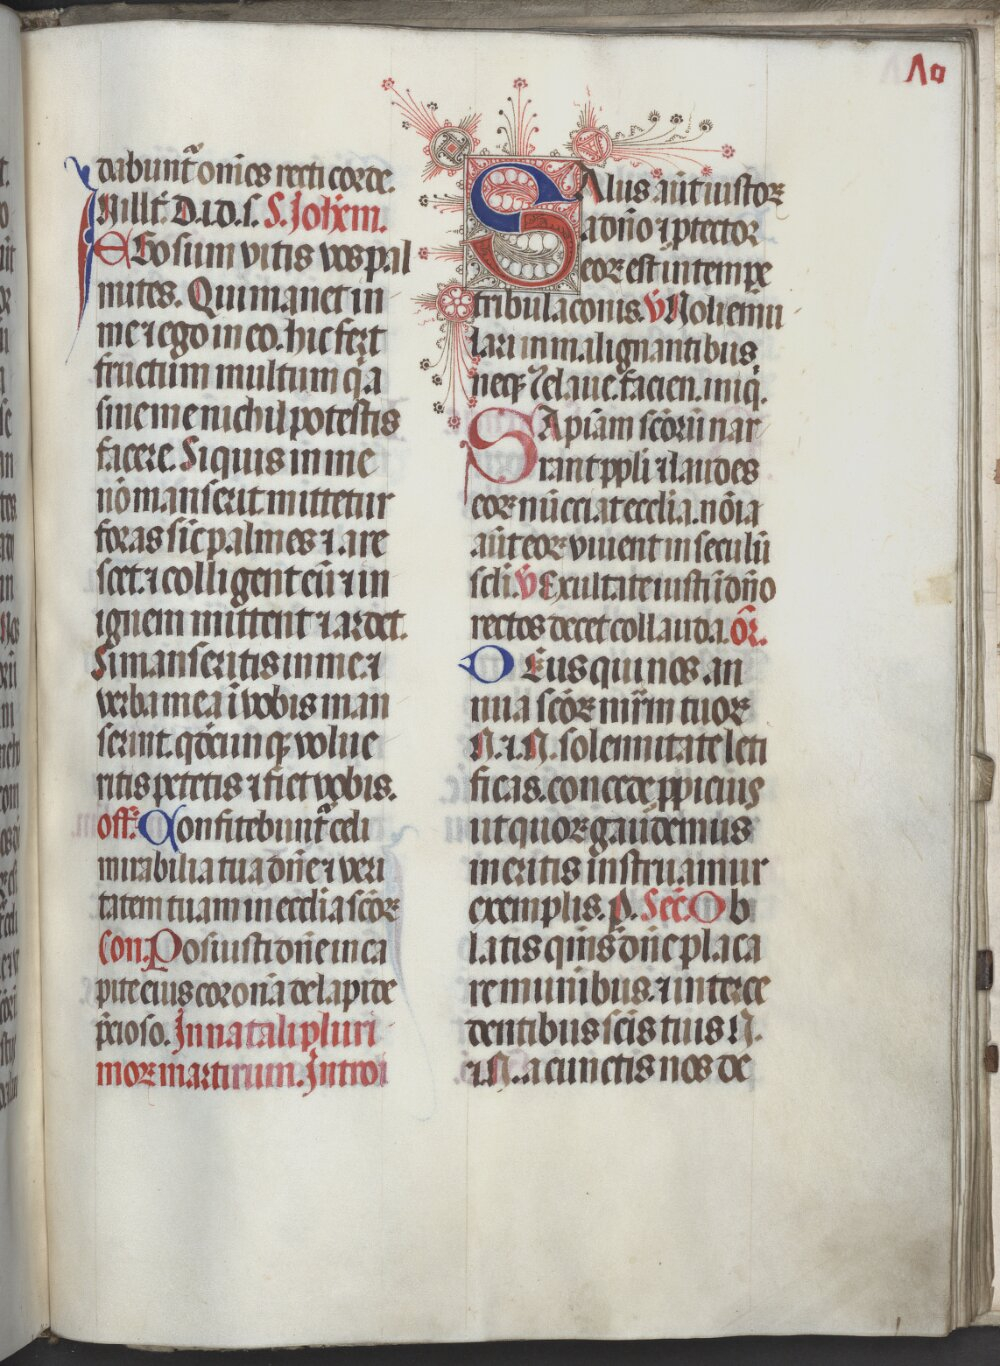 Λ0
dabunt᷑ om̅es recti corde.
In ill̅ t̅. D. i. d. s. S. Joh̅em.
EGo sum vitis vos pal
mites. Qui manet in
me ⁊ ego in eo. hic fert
fructum multum q̇a
sine me nichil potestis
facere. Si quis in me
nō manserit mittetur
foras sic̄ palmes ⁊ are
scet. ⁊ colligent eū ⁊ in
ignem mittent ⁊ ardet.
Si manseritis in me ⁊
verba mea ī vobis man
serint. qđcūnqꝫ volue
ritis petetis ⁊ fiet vobis.
off̅. Confitebunt᷑ celi
mirabilia tua dn̅e ⁊ veri
tatem tuam in eccl̅ia sc̅oꝝ
Con. Posuisti dn̅e in ca
pite eius coronā de lapide
p̅cioso. In natali pluri
moꝝ martirum. Introi
SAlus aūt iustoꝝ
a dn̅o ⁊ ꝓtector
eoꝝ est in tempe
tribulaconis. v̅ Noli emu
lari in malignantibus
neqꝫ zelaue. facien. iniq̇.
SApiām sc̅orū nar
rant ppl̅i ⁊ laudes
eoꝝ nūcciat eccl̅ia. nōīa
aūt eoꝝ vivent in seculū
scl̅i. v̅ Exultate iusti ī dn̅o
rectos decet collauda. Or̅.
DEus qui nos an
nua sc̅oꝝ mr̅m tuoꝝ
N. ⁊. N. solennitate leti
ficas. concede ꝓpicius
ut quoꝝ gaudemus
meritis instruamur
exemplis. p. Sec̅. Ob
latis q̅s dn̅e placa
re munibus. ⁊ interce
dentibus sc̅is tuis N.
⁊. N. a cunctis nos de